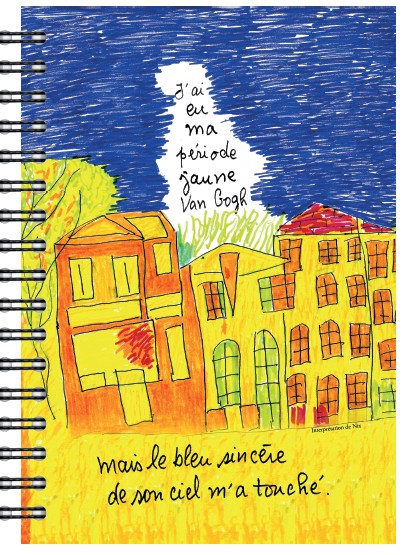 J'ai
eu
ma
période
jaune
Van Gogh
Interprétation de Nix
mais le bleu sincère
de son ciel m'a touché.